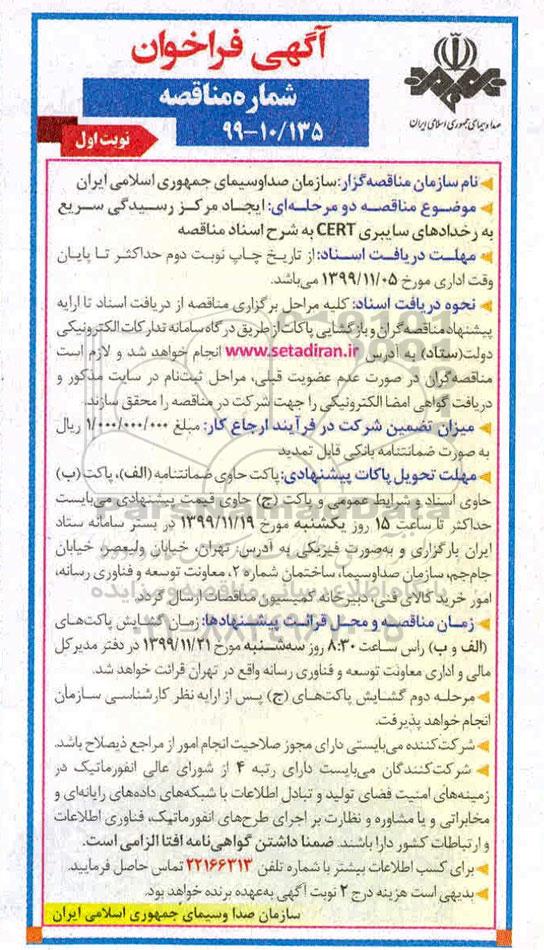 آگهی فراخوان
صدا و سیمای جمهوری اسلامی ایران
شماره مناقصه
۹۹-۱۰/۱۳۵
نوبت اول
نام سازمان مناقصه‌گزار: سازمان صداوسیمای جمهوری اسلامی ایران
موضوع مناقصه دو مرحله‌ای: ایجاد مرکز رسیدگی سریع
به رخدادهای سایبری CERT به شرح اسناد مناقصه
مهلت دریافت اسناد: از تاریخ چاپ نوبت دوم حداکثر تا پایان
وقت اداری مورخ ۱۳۹۹/۱۱/۰۵ می‌باشد.
نحوه دریافت اسناد: کلیه مراحل برگزاری مناقصه از دریافت اسناد تا ارایه
پیشنهاد مناقصه‌گران و بازگشایی پاکات از طریق درگاه سامانه تدارکات الکترونیکی
دولت (ستاد) به آدرس www.setadiran.ir انجام خواهد شد و لازم است
مناقصه‌گران در صورت عدم عضویت قبلی، مراحل ثبت‌نام در سایت مذکور و
دریافت گواهی امضا الکترونیکی را جهت شرکت در مناقصه را محقق سازند.
میزان تضمین شرکت در فرآیند ارجاع کار: مبلغ ۱/۰۰۰/۰۰۰/۰۰۰ ریال
به صورت ضمانتنامه بانکی قابل تمدید
مهلت تحویل پاکات پیشنهادی: پاکت حاوی ضمانتنامه (الف)، پاکت (ب)
حاوی اسناد و شرایط عمومی و پاکت (ج) حاوی قیمت پیشنهادی می‌بایست
حداکثر تا ساعت ۱۵ روز یکشنبه مورخ ۱۳۹۹/۱۱/۱۹ در بستر سامانه ستاد
ایران بارگزاری و به‌صورت فیزیکی به آدرس: تهران، خیابان ولیعصر، خیابان
جام‌جم، سازمان صداوسیما، ساختمان شماره ۲، معاونت توسعه و فناوری رسانه،
امور خرید کالای فنی، دبیرخانه کمیسیون مناقصات ارسال گردد.
زمان مناقصه و محل قرائت پیشنهادها: زمان گشایش پاکت‌های
(الف و ب) راس ساعت ۸:۳۰ روز سه‌شنبه مورخ ۱۳۹۹/۱۱/۲۱ در دفتر مدیر کل
مالی و اداری معاونت توسعه و فناوری رسانه واقع در تهران قرائت خواهد شد.
مرحله دوم گشایش پاکت‌های (ج) پس از ارایه نظر کارشناسی سازمان
انجام خواهد پذیرفت.
شرکت‌کننده می‌بایستی دارای مجوز صلاحیت انجام امور از مراجع ذیصلاح باشد.
شرکت‌کنندگان می‌بایست دارای رتبه ۴ از شورای عالی انفورماتیک در
زمینه‌های امنیت فضای تولید و تبادل اطلاعات با شبکه‌های داده‌های رایانه‌ای و
مخابراتی و یا مشاوره و نظارت بر اجرای طرح‌های انفورماتیک، فناوری اطلاعات
و ارتباطات کشور دارا باشند. ضمنا داشتن گواهی‌نامه افتا الزامی است.
برای کسب اطلاعات بیشتر با شماره تلفن ۲۲۱۶۶۳۱۳ تماس حاصل فرمایید.
بدیهی است هزینه درج ۲ نوبت آگهی به‌عهده برنده خواهد بود.
سازمان صدا وسیمای جمهوری اسلامی ایران